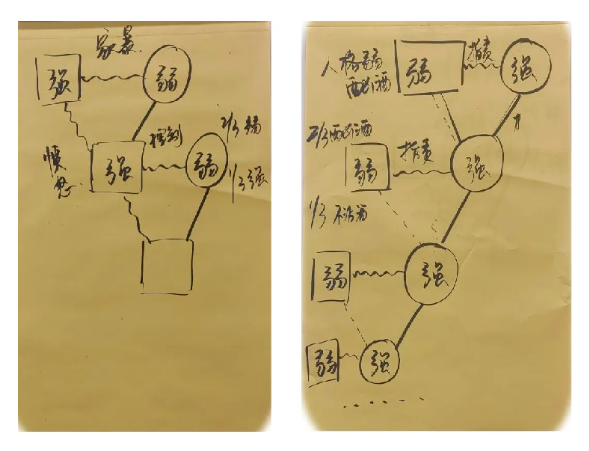 家暴
强 弱
愤怒
强 控制 弱
2/3 弱
1/3 强
人格弱 弱 指责 强
酗酒
2/3 酗酒
弱 指责 强
1/3 不酗酒
弱 强
弱 强
......